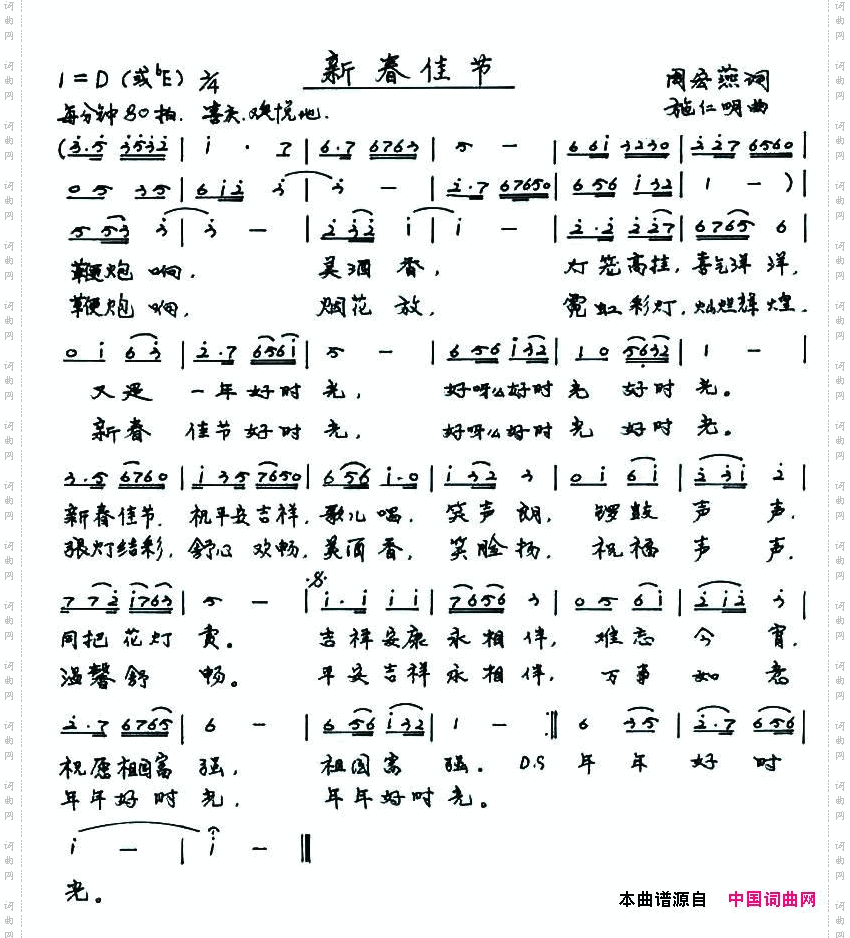 新春佳节
1=D（或bE）2/4
周宏燕词
每分钟80拍. 喜庆.欢悦地.
施仁明曲
(3·5 3532 | i · 7 | 6·7 6763 | 5 - | 66i 3230 | 227 6560 |
05 35 | 6i2 3 | 3 - | 2·7 67650 | 656 i32 | 1 - )|
5 53 3 | 3 - | 232 i | i - | 2·2 227 | 6765 6 |
鞭炮响, 美酒香, 灯笼高挂,喜气洋洋,
鞭炮响, 烟花放, 霓虹彩灯,灿烂辉煌.
0i 63 | 2·7 656i | 5 - | 656 i32 | 10 5632 | 1 - |
又是 一年好时光, 好呀么好时光 好时光。
新春 佳节好时光, 好呀么好时光 好时光。
3·5 6760 | i35 7650 | 656 i·0 | i32 3 | 0i 6i | 23i 2 |
新春佳节. 祝平安吉祥,歌儿唱, 笑声朗, 锣鼓声声,
张灯结彩,舒心欢畅,美酒香, 笑脸扬, 祝福声声,
772 i763 | 5 - | i·i ii | 7656 3 | 05 6i | 2i2 3 |
同把花灯赏。 吉祥安康永相伴, 难忘今宵,
温馨舒畅。 平安吉祥永相伴, 万事如意
2·7 6765 | 6 - | 656 i32 | 1 - :|| 6 35 | 2·7 656 |
祝愿祖国富强, 祖国富强。 D.S 年年好时
年年好时光, 年年好时光。
i - | i - ||
光。
本曲谱源自 中国词曲网
词曲网